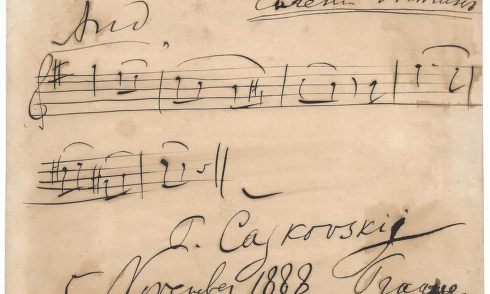 And
P. Cajkovskij
5 November 1888 Prague.